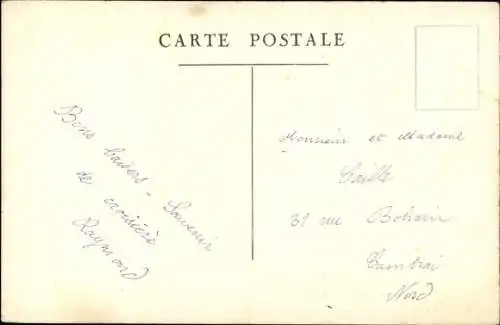 CARTE POSTALE
Bons baisers - Souvenir
de croisière
Raymond
Monsieur et Madame
Caille
31 rue Bohain
Cambrai
Nord